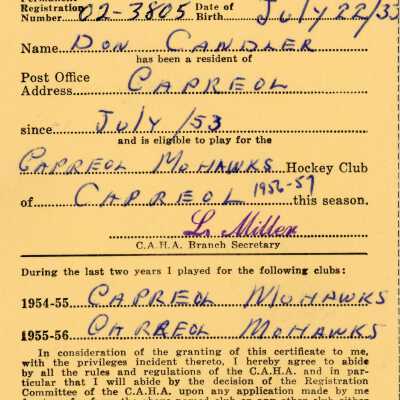 Registration 02-3805 Date of
Number Birth July 22/33
Name DON CANDLER
has been a resident of
Post Office
Address CAPREOL
since JULY /53
and is eligible to play for the
CAPREOL MOHAWKS Hockey Club
of CAPREOL 1956-57 this season.
L. Miller
C.A.H.A. Branch Secretary
During the last two years I played for the following clubs:
1954-55 CAPREOL MOHAWKS
1955-56 CAPREOL MOHAWKS
In consideration of the granting of this certificate to me,
with the privileges incident thereto, I hereby agree to abide
by all the rules and regulations of the C.A.H.A. and in par-
ticular that I will abide by the decision of the Registration
Committee of the C.A.H.A. upon any application made by me